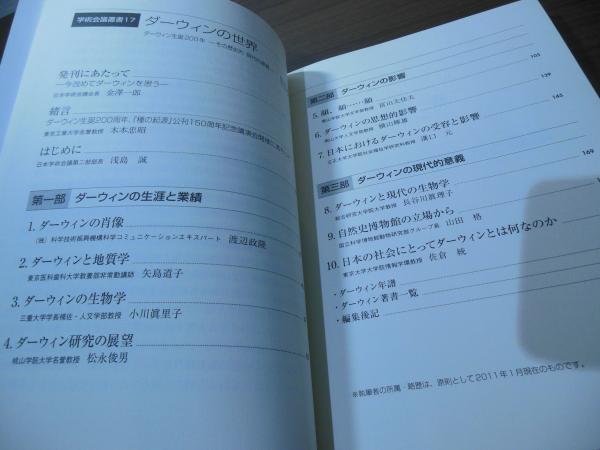 学術会議叢書17
ダーウィンの世界
ダーウィン生誕200年 ―その歴史的・現代的意義―
発刊にあたって
―今改めてダーウィンを思う―
日本学術会議会長 金澤一郎
緒言
ダーウィン生誕200周年、『種の起源』公刊150周年記念講演会開催に
東京工業大学名誉教授 本本忠昭
はじめに
日本学術会議第二部部長 浅島 誠
第一部 ダーウィンの生涯と業績
1. ダーウィンの肖像
(独)科学技術振興機構科学コミュニケーションエキスパート 渡辺政隆
2. ダーウィンと地質学
東京医科歯科大学教養部非常勤講師 矢島道子
3. ダーウィンの生物学
三重大学学長補佐・人文学部教授 小川眞里子
4. ダーウィン研究の展望
桃山学院大学名誉教授 松永俊男
第二部 ダーウィンの影響
105
5. 顔、顔……顔
富山太佳夫
129
6. ダーウィンの思想的影響
横山輝雄
145
7. 日本におけるダーウィンの受容と影響
溝口 元
第三部 ダーウィンの現代的意義
169
8. ダーウィンと現代の生物学
総合研究大学院大学教授 長谷川眞理子
9. 自然史博物館の立場から
国立科学博物館動物研究部グループ長 山田 格
10. 日本の社会にとってダーウィンとは何なのか
東京大学大学院情報学環教授 佐倉 統
・ダーウィン年譜
・ダーウィン著書一覧
・編集後記
※執筆者の所属・略歴は、原則として2011年1月現在のものです。